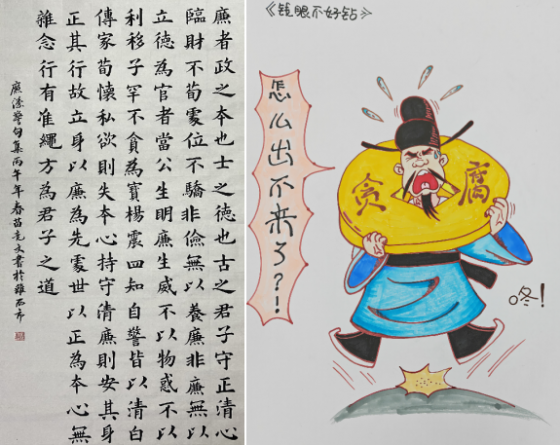 廉者政之本也士之德也古之君子守正清心
臨財不苟處位不驕非儉無以養廉非廉無以
立德為官者當公生明廉生威不以物惑不以
利移子罕不貪為寶楊震四知自警皆以清白
傳家苟懷私欲則失本心持守清廉則安其身
正其行故立身以廉為先處世以正為本心無
雜念行有准繩方為君子之道
廉潔警句集丙午年春苗克文書於雅石齋
《钱眼不好钻》
怎么出不来了?!
贪腐
咚!